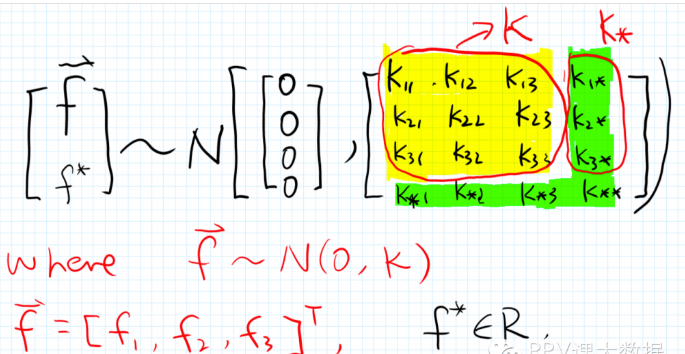 →K K*
[f⃗ f*] ~ N[[0 0 0 0], [K11 K12 K13 K1* K21 K22 K23 K2* K31 K32 K33 K3* K*1 K*2 K*3 K**]])
where f⃗ ~ N(0, K)
f⃗ = [f1, f2, f3]ᵀ, f* ∈ R.
PPV课大数据